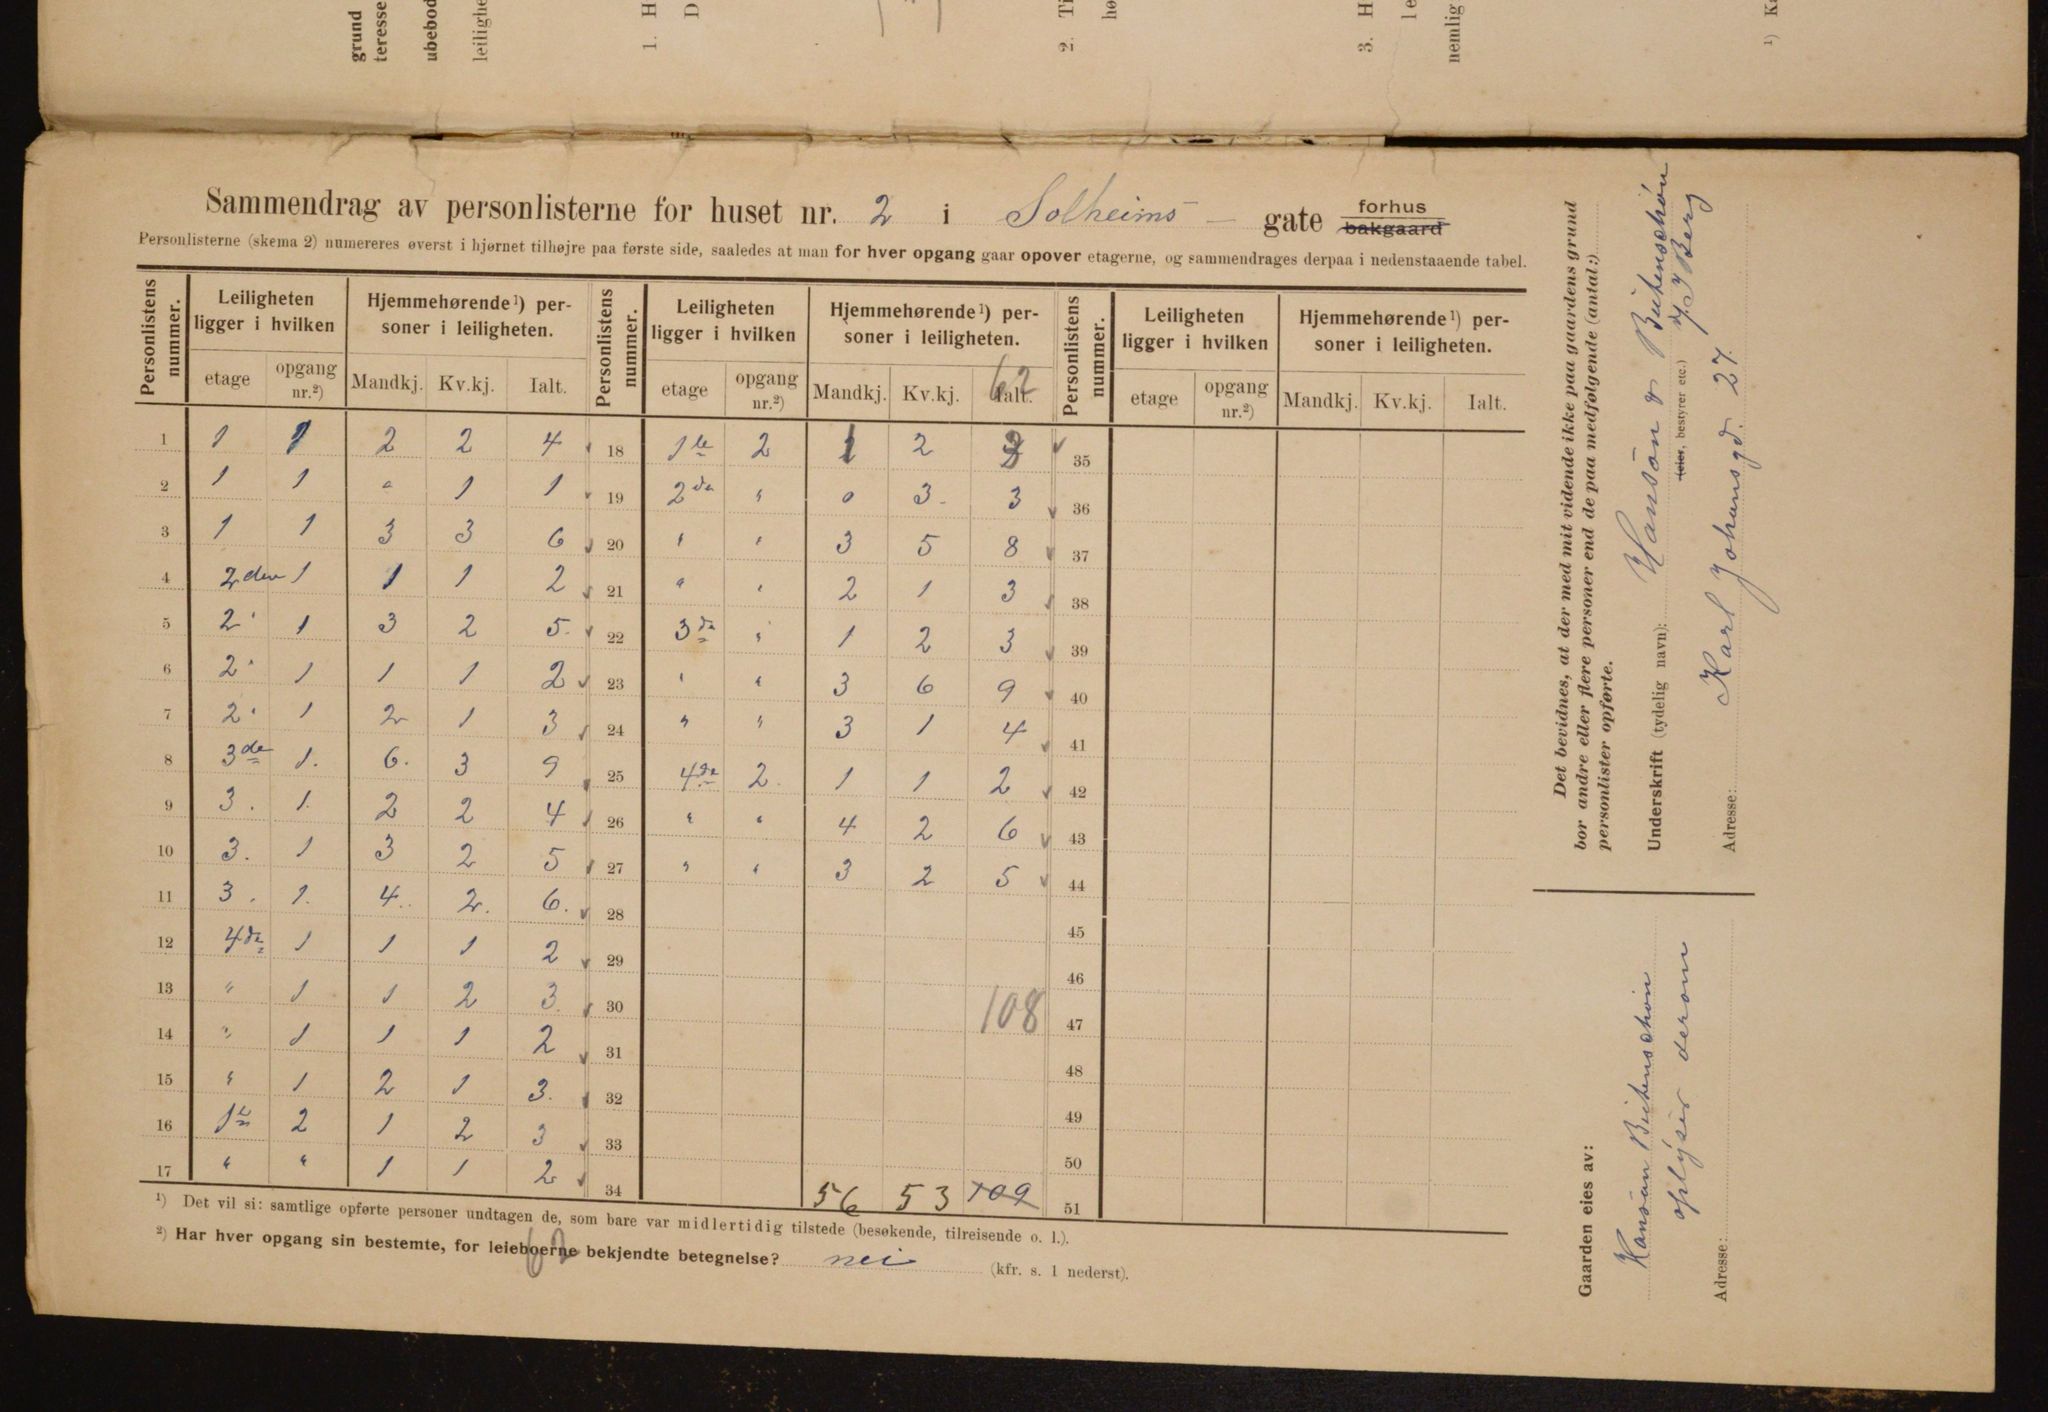 grund
teresse
ubebod
leilighe
1. H
D
2. Ti
hø
3. H
le
nemlig
¹) Ka
Sammendrag av personlisterne for huset nr. 2 i Solheims gate forhus bakgaard
Personlisterne (skema 2) numereres øverst i hjørnet tilhøjre paa første side, saaledes at man for hver opgang gaar opover etagerne, og sammendrages derpaa i nedenstaaende tabel.
Personlistens nummer. | Leiligheten ligger i hvilken | Hjemmehørende¹) personer i leiligheten. | Personlistens nummer. | Leiligheten ligger i hvilken | Hjemmehørende¹) personer i leiligheten. | Personlistens nummer. | Leiligheten ligger i hvilken | Hjemmehørende¹) personer i leiligheten.
etage | opgang nr.²) | Mandkj. | Kv.kj. | Ialt. | etage | opgang nr.²) | Mandkj. | Kv.kj. | Ialt. | etage | opgang nr.²) | Mandkj. | Kv.kj. | Ialt.
62
1 | 1 | 1 | 2 | 2 | 4 | 18 | 1ste | 2 | 1 | 2 | 3 | 35
2 | 1 | 1 | " | 1 | 1 | 19 | 2den | " | 0 | 3 | 3 | 36
3 | 1 | 1 | 3 | 3 | 6 | 20 | " | " | 3 | 5 | 8 | 37
4 | 2den | 1 | 1 | 1 | 2 | 21 | " | " | 2 | 1 | 3 | 38
5 | 2" | 1 | 3 | 2 | 5. | 22 | 3de | " | 1 | 2 | 3 | 39
6 | 2" | 1 | 1 | 1 | 2 | 23 | " | " | 3 | 6 | 9 | 40
7 | 2" | 1 | 2 | 1 | 3 | 24 | " | " | 3 | 1 | 4 | 41
8 | 3de | 1. | 6. | 3 | 9 | 25 | 4de | 2. | 1 | 1 | 2 | 42
9 | 3. | 1. | 2 | 2 | 4 | 26 | " | " | 4 | 2 | 6 | 43
10 | 3. | 1 | 3 | 2 | 5 | 27 | " | " | 3 | 2 | 5 | 44
11 | 3. | 1. | 4. | 2. | 6. | 28 | 45
12 | 4de | 1 | 1 | 1 | 2 | 29 | 46
13 | " | 1 | 1 | 2 | 3. | 30 | 108 | 47
14 | " | 1 | 1 | 1 | 2 | 31 | 48
15 | " | 1 | 2 | 1 | 3. | 32 | 49
16 | 1ste | 2 | 1 | 2 | 3 | 33 | 50
17 | " | " | 1 | 1 | 2 | 34 | 56 | 53 | 109 | 51
¹) Det vil si: samtlige opførte personer undtagen de, som bare var midlertidig tilstede (besøkende, tilreisende o. l.).
²) Har hver opgang sin bestemte, for leieboerne bekjendte betegnelse? nei (kfr. s. 1 nederst).
62
Det bevidnes, at der med mit vidende ikke paa gaardens grund
bor andre eller flere personer end de paa medfølgende (antal:)
personlister opførte.
Underskrift (tydelig navn): Hansön & Beichenschön
(eier, bestyrer etc.) v. J Berg
Adresse: Karl Johansgd. 27.
Gaarden eies av:
Hansön Beichenschön
oplyser derom
Adresse: